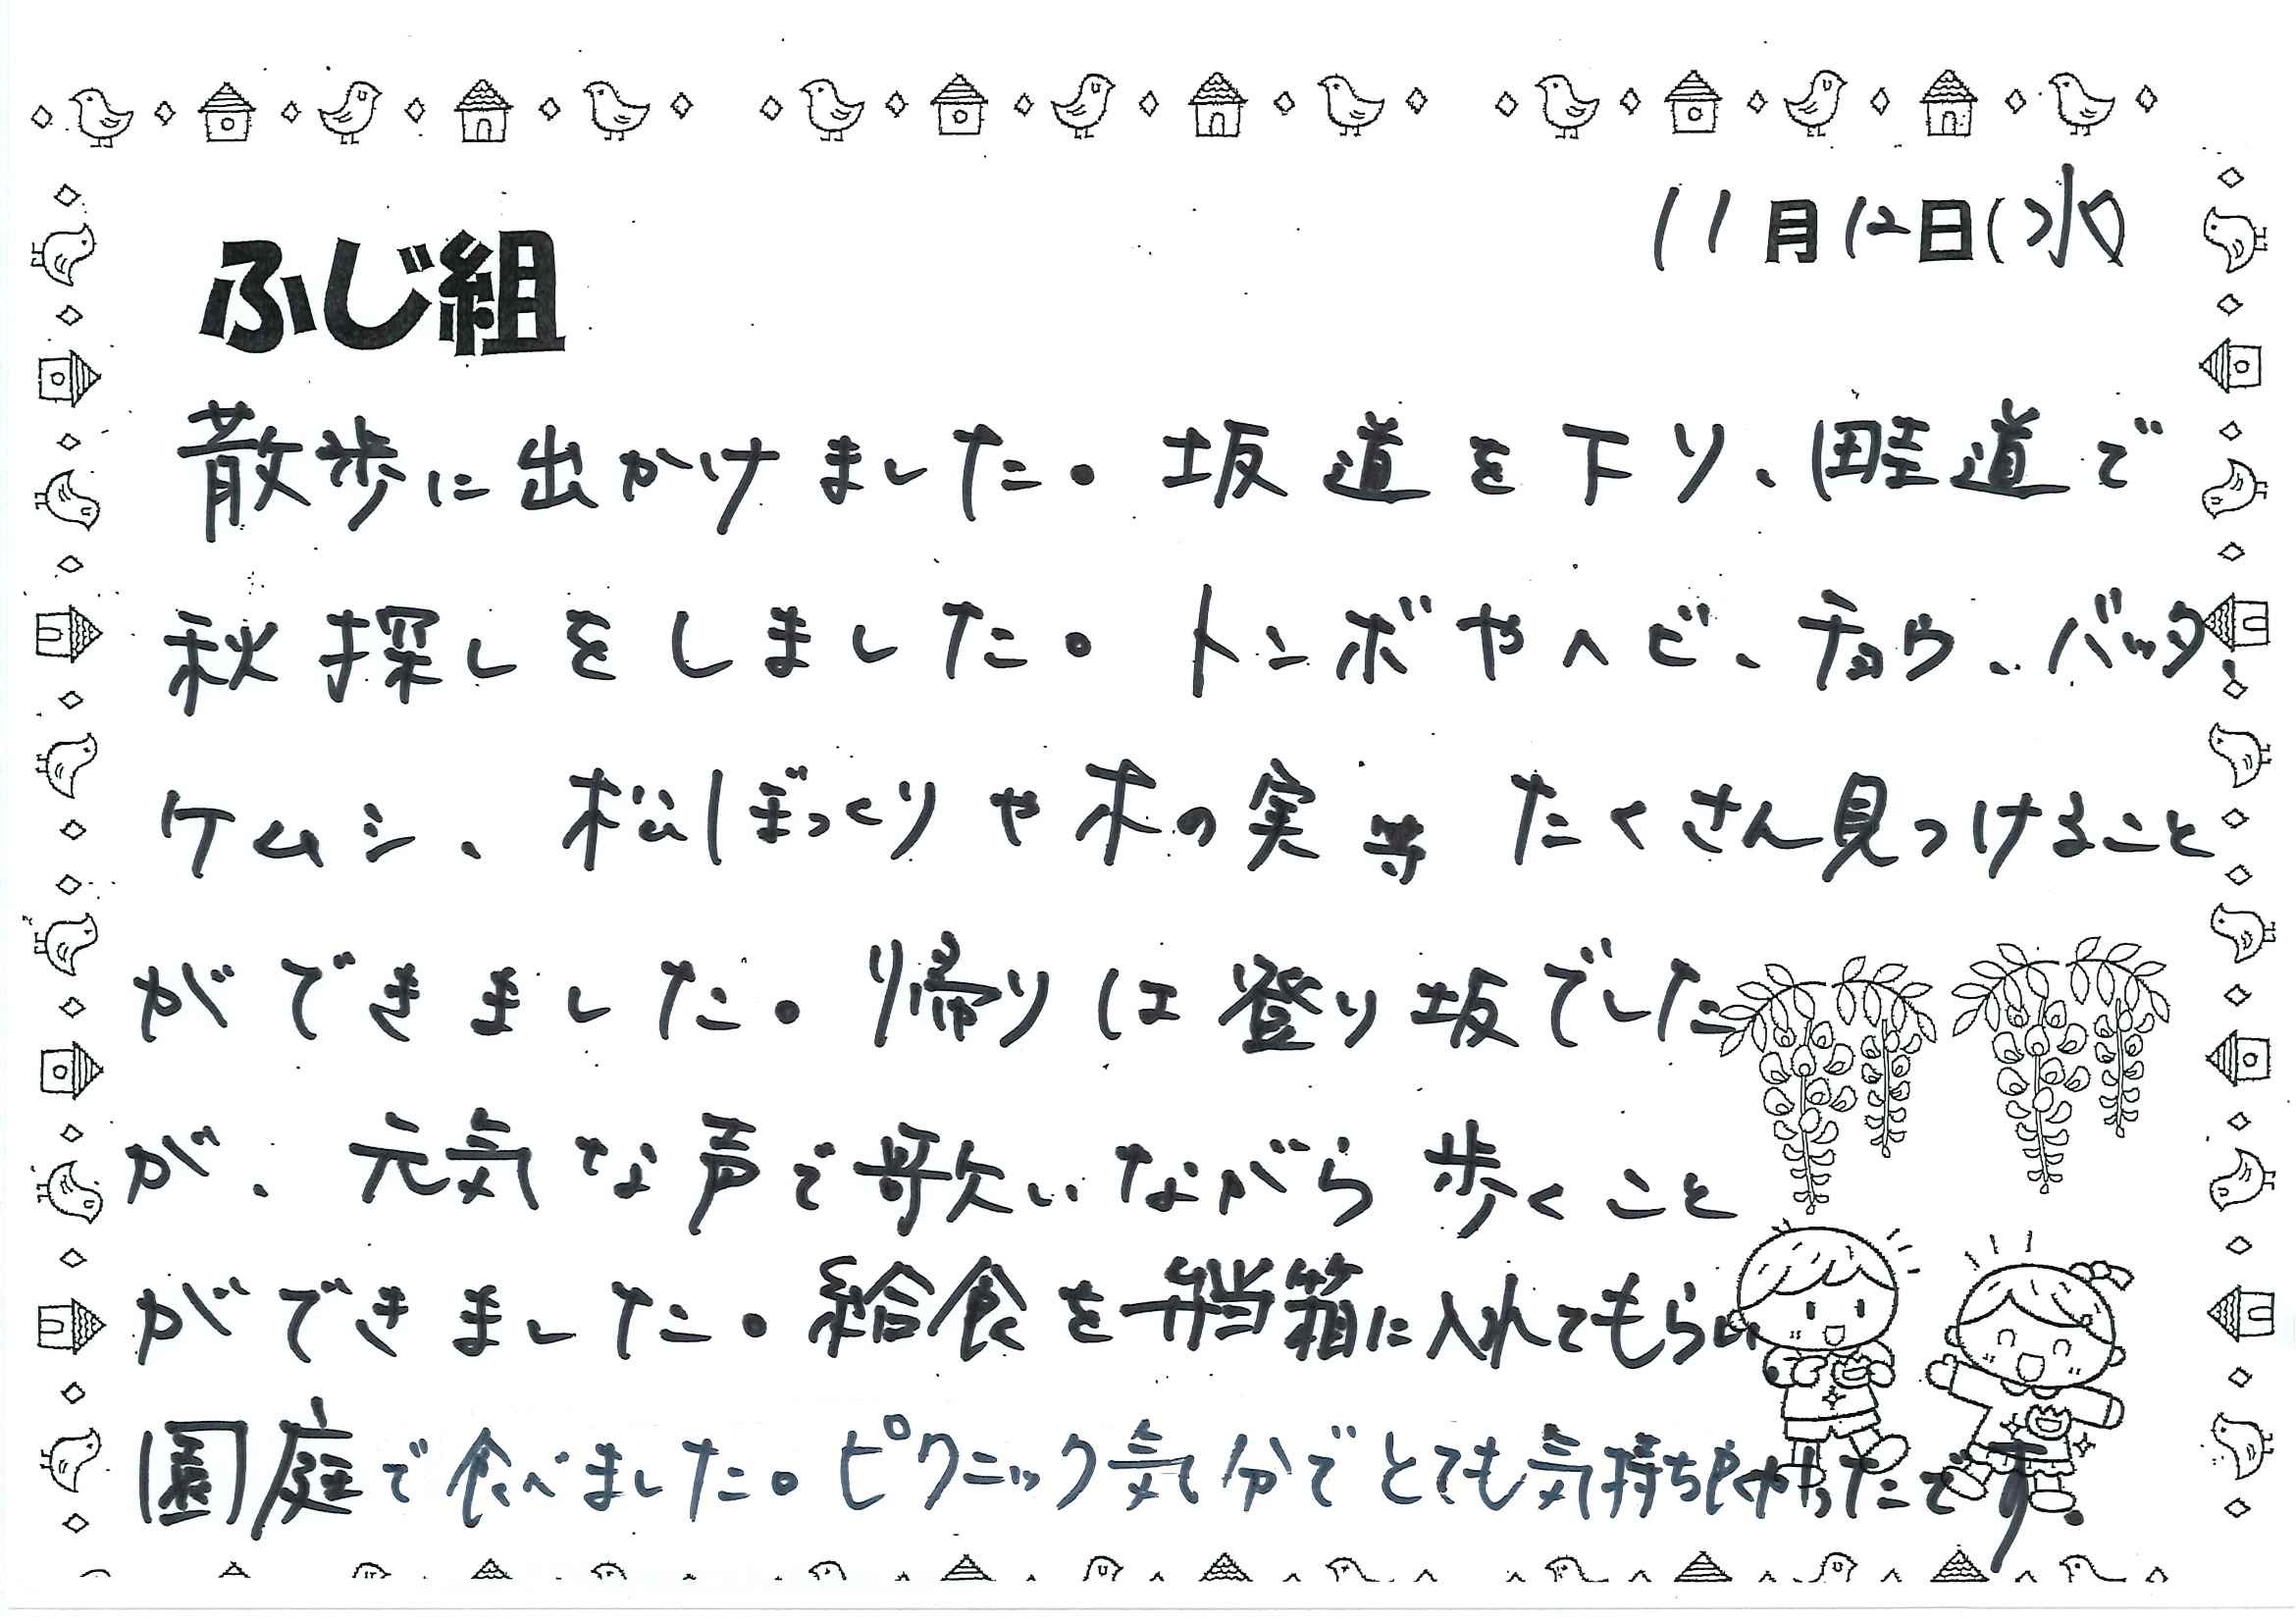 11月12日(水)
ふじ組
散歩に出かけました。坂道を下り、畦道で
秋探しをしました。トンボやヘビ、チョウ、バッタ、
ケムシ、松ぼっくりや木の実等たくさん見つけること
ができました。帰りは登り坂でした
が、元気な声で歌いながら歩くこと
ができました。給食を弁当箱に入れてもらい、
園庭で食べました。ピクニック気分でとても気持ちよかったです。